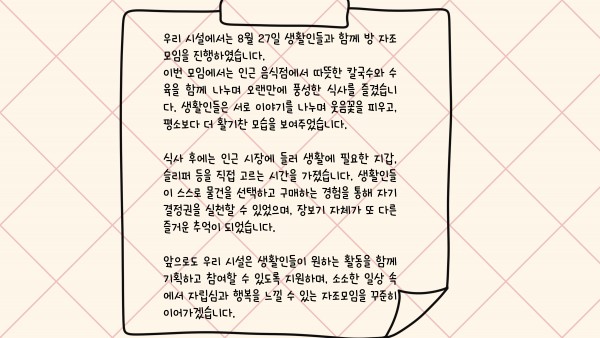 우리 시설에서는 8월 27일 생활인들과 함께 방 자조
모임을 진행하였습니다.
이번 모임에서는 인근 음식점에서 따뜻한 칼국수와 수
육을 함께 나누며 오랜만에 풍성한 식사를 즐겼습니
다. 생활인들은 서로 이야기를 나누며 웃음꽃을 피우고,
평소보다 더 활기찬 모습을 보여주었습니다.
식사 후에는 인근 시장에 들러 생활에 필요한 지갑,
슬리퍼 등을 직접 고르는 시간을 가졌습니다. 생활인들
이 스스로 물건을 선택하고 구매하는 경험을 통해 자기
결정권을 실천할 수 있었으며, 장보기 자체가 또 다른
즐거운 추억이 되었습니다.
앞으로도 우리 시설은 생활인들이 원하는 활동을 함께
기획하고 참여할 수 있도록 지원하며, 소소한 일상 속
에서 자립심과 행복을 느낄 수 있는 자조모임을 꾸준히
이어가겠습니다.